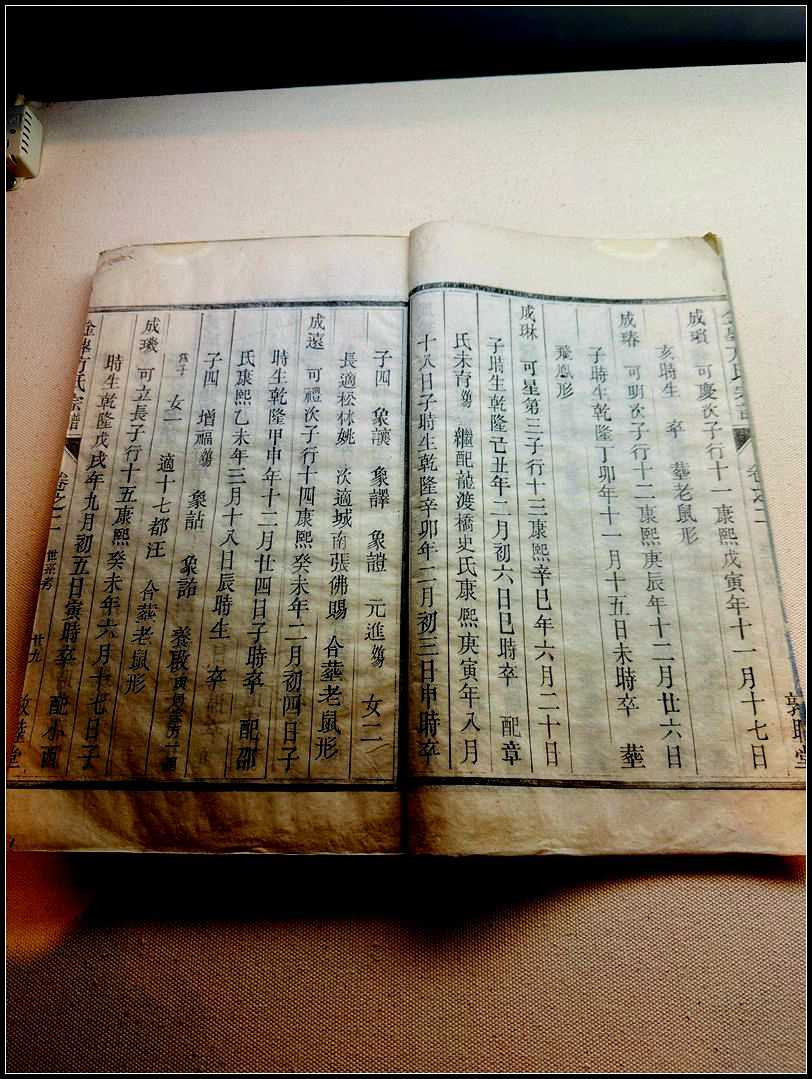 成瓚 可慶次子行十一康熙戊寅年十一月十七日
亥時生 卒 葬老鼠形
成瑃 可明次子行十二康熙庚辰年十二月廿六日
子時生乾隆丁卯年十一月十五日未時卒 葬
飛鳳形
成琳 可星第三子行十三康熙辛巳年六月二十日
子時生乾隆己丑年二月初六日巳時卒 配章
氏未育殤 繼配龍渡橋史氏康熙庚寅年八月
十八日子時生乾隆辛卯年二月初三日申時卒
子四 象讃 象譯 象證 元進殤 女二
長適松林姚 次適城南張佛賜 合葬老鼠形
成遠 可禮次子行十四康熙癸未年二月初四日子
時生乾隆甲申年十二月廿四日子時卒 配邵
氏康熙乙未年三月十八日辰時生 卒
子四 增福殤 象詁 象詥 養
女一 適十七都汪 合葬老鼠形
成璣 可立長子行十五康熙癸未年六月十七日子
時生乾隆戊戌年九月初五日寅時卒 配小西
方氏宗譜 卷之二 世系考 廿九 敦睦堂